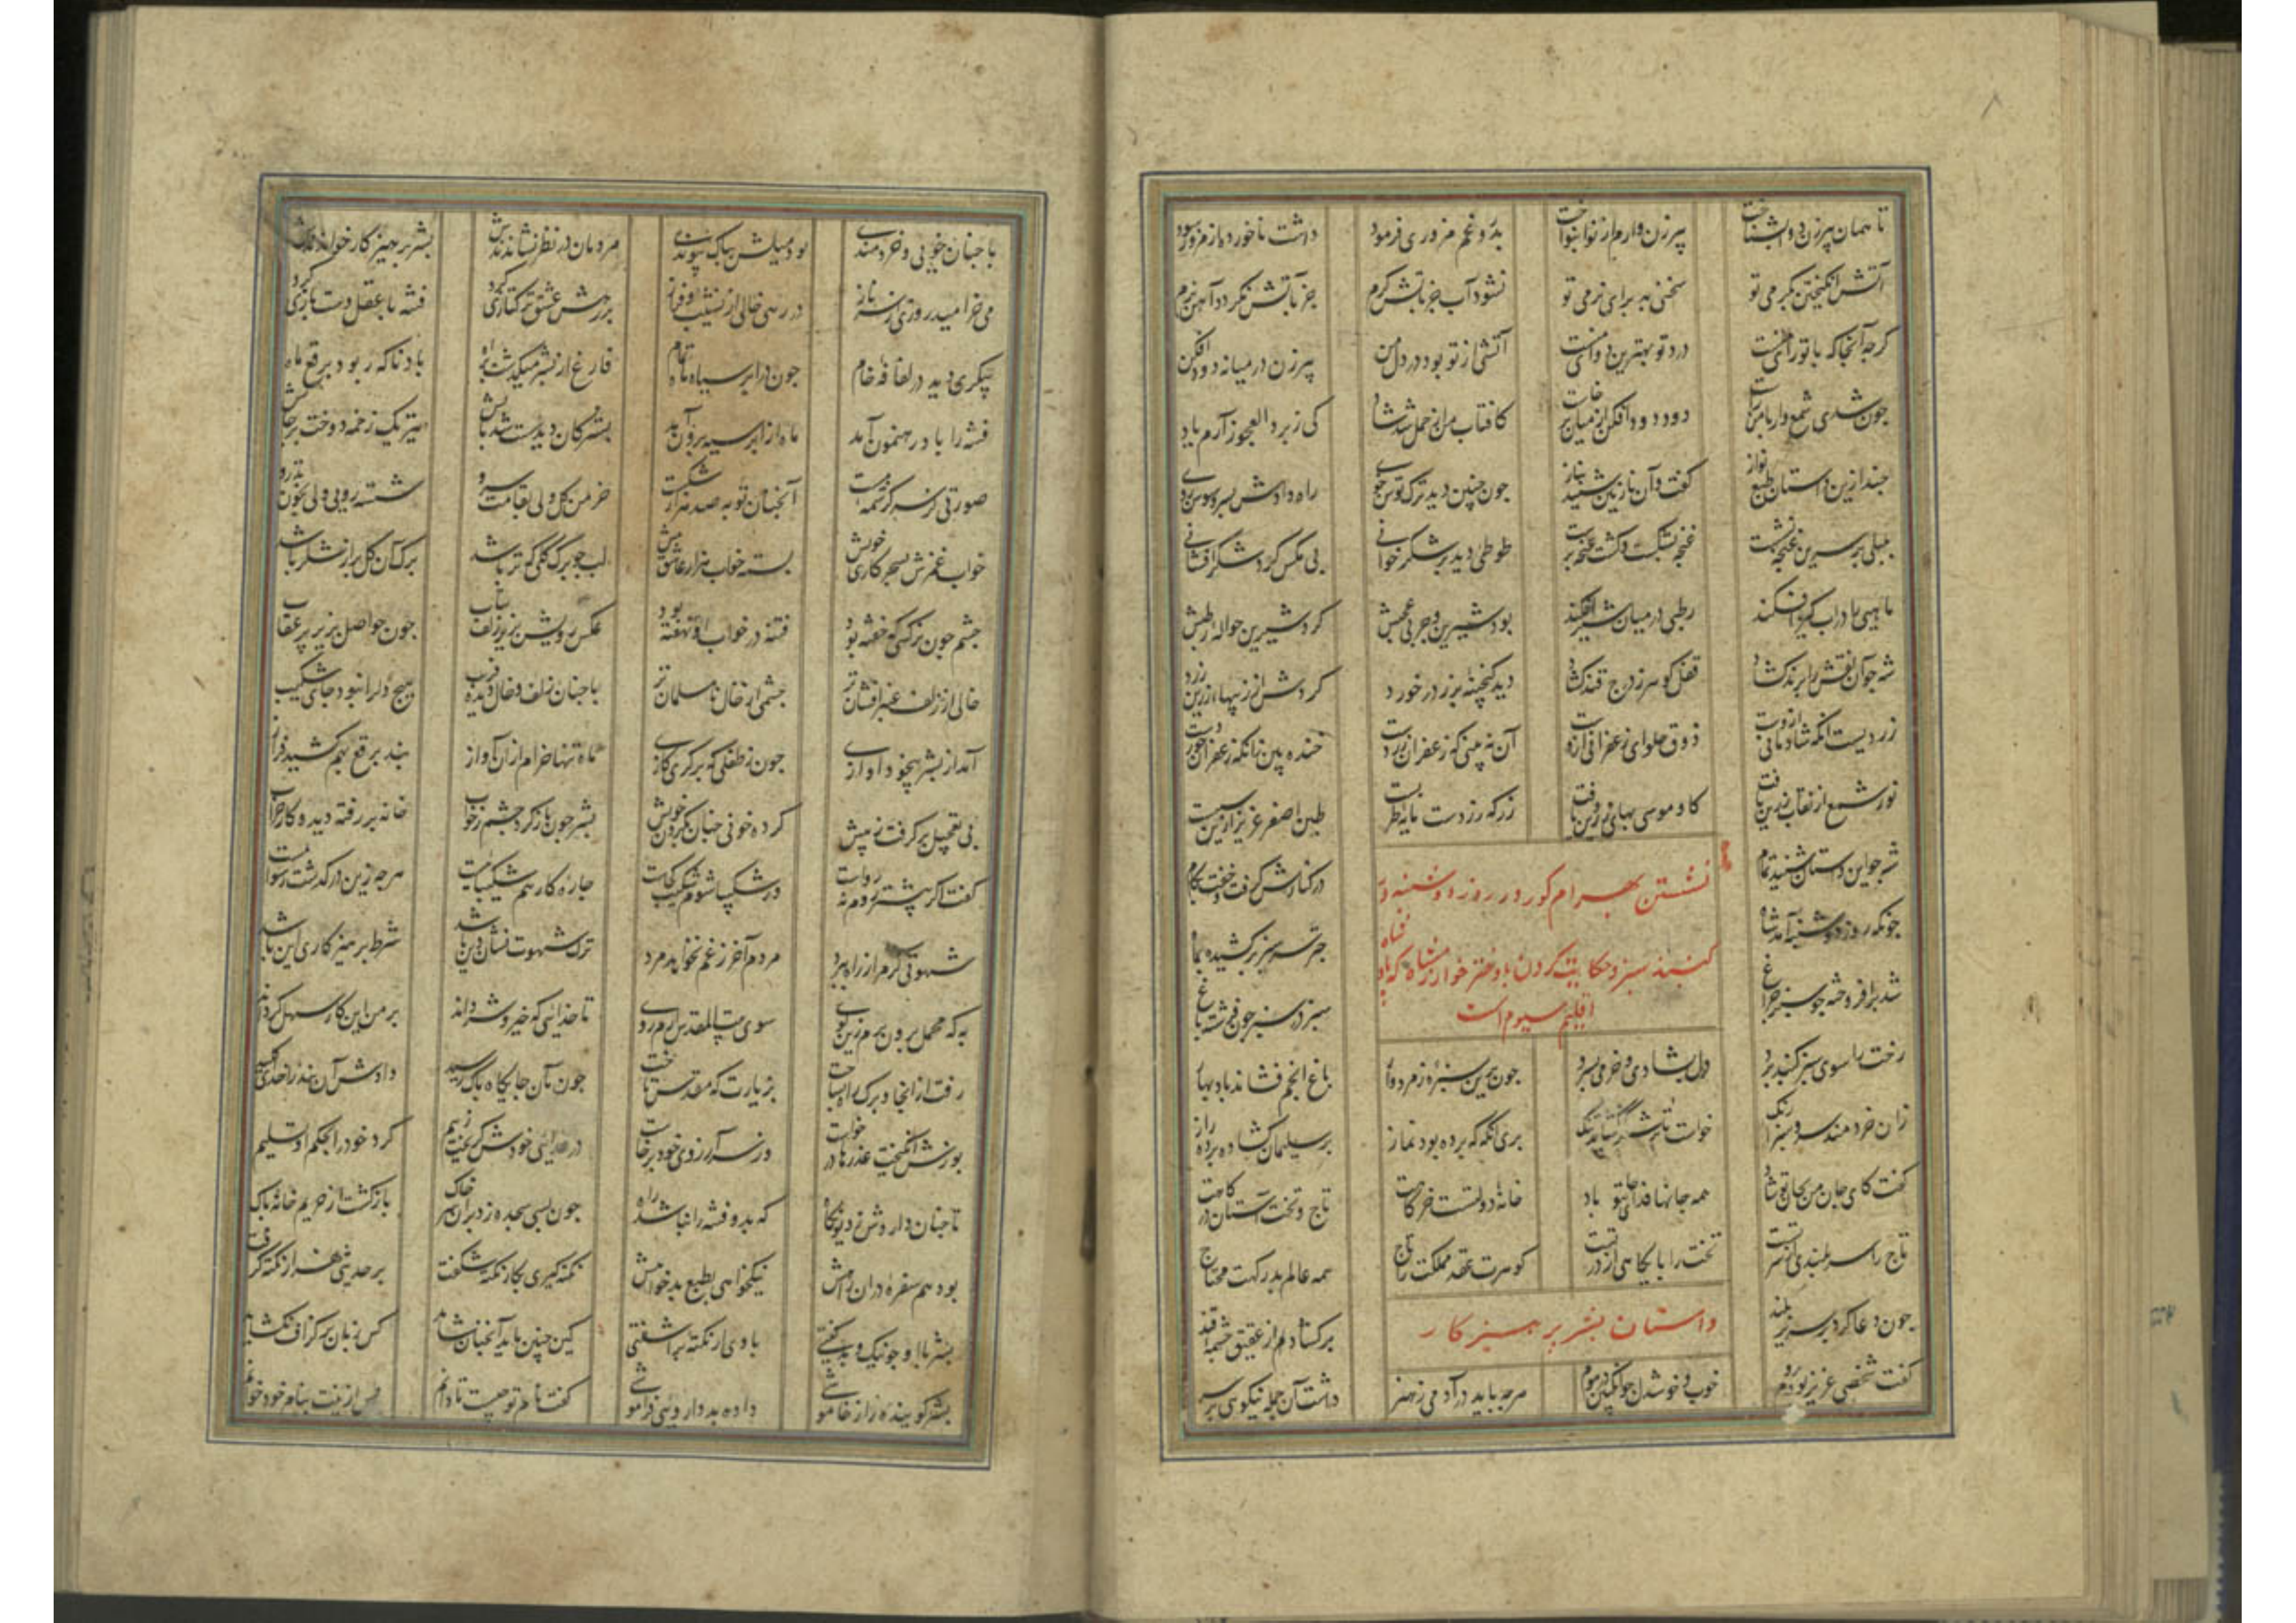 تا همان پیرزن دوا بشناخت پیرزن وارم از نوا بنواخت بدروغم مزوری فرمود داشت ناخورد و از مزور سود
آتش انکیختن بکرمی تو سختیی بد برای نرمی تو نشود آب جز باتش کرم جز باتش نکردد آهن نرم
کرچه آنجا که با تو رای منست درد تو بهترین دوای منست آتشی از تو بود در دل من پیرزن در میانه دودافکن
چون شدی شمع وار با من راست دود دودافکن از میان برخاست کافتاب من از حمل شد شاد کی ز برد العجوز آرم یاد
چند ازین داستان طبع نواز کفت و آن نازنین شنید بناز چون چنین دید ترک توسن خوی راه دادش بسرو سوسن بوی
بلبلی بر سریر غنچه نشست غنچه بشکفت و کشت غنچه طوطی دید بر شکر خوانی بی مکس کرد شکر افشانی
ماهیی را در آب کیر افکند رطبی در میان شیر افکند بود شیرین و چربی عجبش کرد شیرین حواله رطبش
شه چو آن نقش را پرند کشاد قفل کوهر ز درج قند کشاد دید کنجینه بزر در خورد کردش از زیبهای زرین زرد
زردیست آنکه شادمانی ازوست ذوق حلوای زعفرانی ازوست آن نه بینی که زعفران زردست خنده بین زانکه زعفران خوردست
نور شمع از نقاب زردین تافت کاو موسی بها بزردی یافت زر که زردست مایه طربست طین اصفر عزیز ازین سببست
شه چو این داستان شنید تمام در کنارش کرفت و خفت بکام
نشستن بهرام کور در روز دوشنبه در
چونکه روز دوشنبه آمد شاه چتر سرسبز برکشیده بماه
کنبذ سبز و حکایت کردن با دختر خوارزمشاه که
شد برافروخته چو سبز چراغ سبز در سبز چون فرشته باغ
اقلیم سیوم است
رخت را سوی سبز کنبد برد دل بشادی و خرمی بسپرد چون برین سبزه زمرد وار باغ انجم فشاند باد بهار
زان خردمند سرو سبزا رنک خواست تا از شکر کشاید تنک پری آنکه که برده بود نماز بر سلیمان کشاد پرده راز
کفت کای جان من بجان تو شاد همه جانها فدای جان تو باد خانه دولتست خرکاهت تاج و تخت آستان درکاهت
تاج را سر بلندی از سر تست تخت را پایکاهی از در تست کوهرت عقد مملکت را تاج همه عالم بدرکهت محتاج
چون دعا کرد بر سریر بلند برکشاد از عقیق چشمه قند
داستان بشر پرهیزکار
کفت شخصی عزیز بود بروم خوب و خوشدل چو انکبین در موم هرچه باید در آدمی ز هنر داشت آن جمله نیکوی بر سر
با چنان خوبی و خردمندی بود میلش بپاک پیوندی مردمان در نظر نشاندندش بشر پرهیزکار خواندندش
می خرامید روزی از سر ناز در رهی خالی از نشیب و فراز بر رهش عشق ترکتازی کرد فتنه با عقل دست یازی کرد
پیکری دید در لفافه خام چون در ابر سیاه ماه تمام فارغ از بشر میکذشت براه باد ناکه ربود برقع ماه
فتنه را باد رهنمون آمد ماه از ابر سیه برون آمد بشر کان دید سست شد پایش تیر یک زخمه دوخت بر جایش
صورتی دید کز کرشمه مست آنچنان توبه صد هزار شکست خرمن کل ولی بقامت سرو شسته رویی ولی بخون تذرو
خواب غمزش بسحرکاری خویش بسته خواب هزار عاشق بیش لب چو برک کلی که تر باشد برک آن کل پر از شکر باشد
چشم چون نرکسی که خفته بود فتنه در خواب او نهفته بود عکس رویش بزیر زلف بتاب چون حواصل بزیر پر عقاب
خالی از زلف عنبر افشان تر چشمی از خال نامسلمان تر با چنان زلف و خال دیده فریب هیچ دل را نبود جای شکیب
آمد از بشر بیخود آوازی چون ز طفلی که برکری کازی ماه تنها خرام ازان آواز بند برقع بهم کشید فراز
پی تعجیل برکرفت ز پیش کرده خونی چنان بکردن خویش بشر چون باز کرد چشم ز خواب خانه بر رفته دید و کار خراب
کفت اکر پیشتر روم نه رواست ور شکیبا شوم شکیب کجاست چاره کار هم شکیباییست هرچه زین درکذشت رسواییست
شهوتی کر مرا ز راه ببرد مردم آخر ز غم نخواهد مرد ترک شهوت نشان دین باشد شرط پرهیزکاری این باشد
به که محمل برون برم زین کوی سوی بیت المقدس آرم روی تا خدایی که خیر و شر داند بر من این کار سهل کرداند
رفت ازانجا و برک راه بساخت بزیارت که مقدس تاخت چون بان جایکاه پاک رسید دادش آن
وز سر آرزوی خود برخاست کرد خود را بحکم او تسلیم
تا چنان داردش ز دیو نکاه که بدو فتنه را نباشد راه چون بسی سجده زد بران سر خاک بازکشت از حریم خانه پاک
بود هم سفره دران راهش نیکخواهی بطبع بدخواهش نکته کیری بکار نکته شکفت بر حدیثی هزار نکته کرفت
بشر با او چو نیک و بد کفتی با وی از نکته بر آشفتی کین چنین باید آنچنان شاید کس زبان بر کزاف نکشاید
بشر کوینده را ز خاموشی داده بد داروی فراموشی کفت نام تو چیست تا دانم پس ازینت بنام خود خوانم